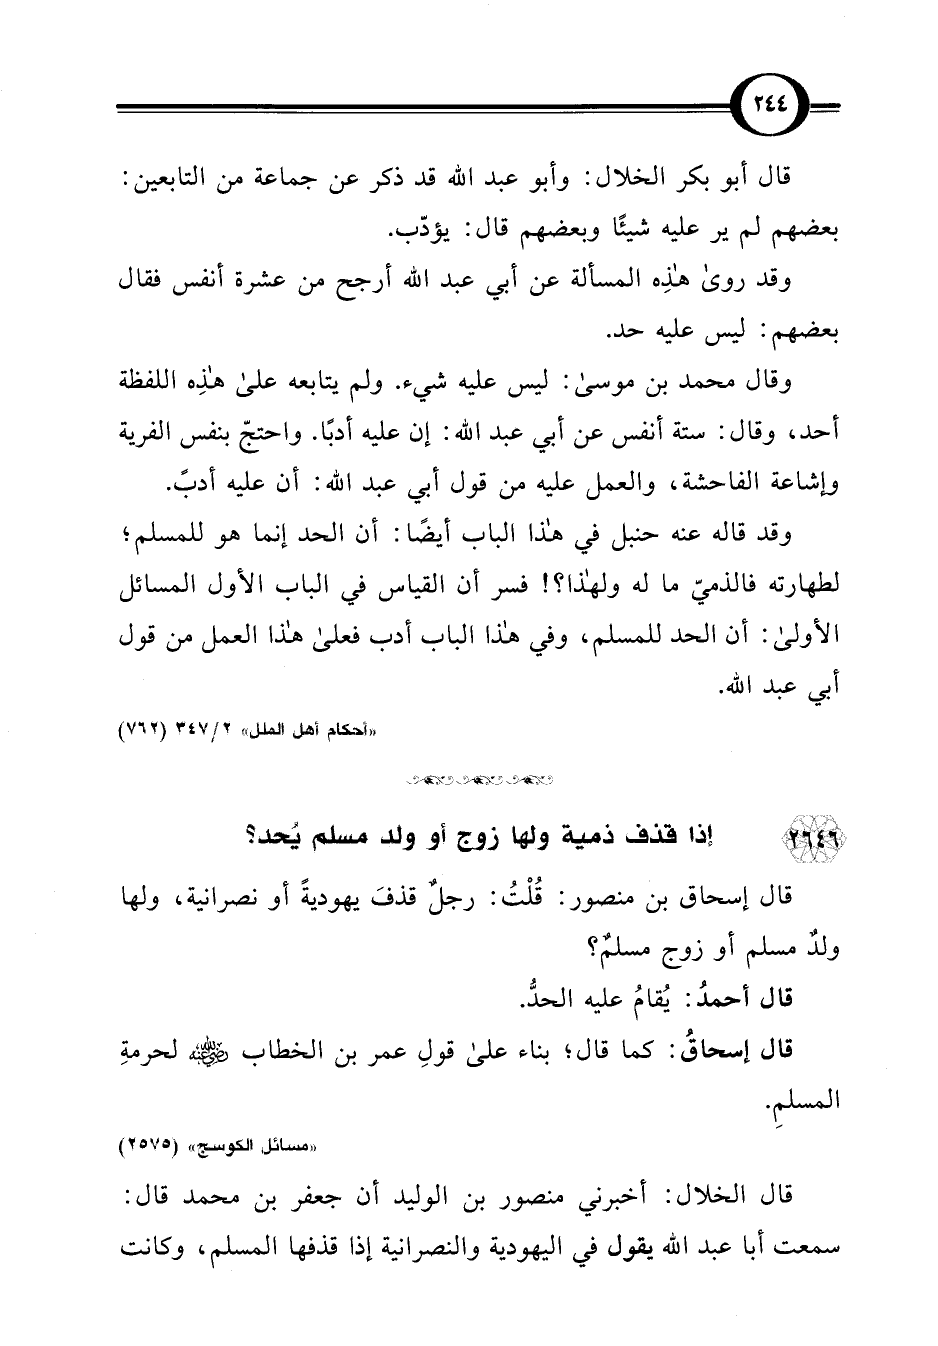 ٢٤٤
قال أبو بكر الخلال: وأبو عبد الله قد ذكر عن جماعة من التابعين:
بعضهم لم ير عليه شيئًا وبعضهم قال: يؤدّب.
وقد روىٰ هـٰذِه المسألة عن أبي عبد الله أرجح من عشرة أنفس فقال
بعضهم: ليس عليه حد.
وقال محمد بن موسىٰ: ليس عليه شيء. ولم يتابعه علىٰ هـٰذِه اللفظة
أحد، وقال: ستة أنفس عن أبي عبد الله: إن عليه أدبًا. واحتجّ بنفس الفرية
وإشاعة الفاحشة، والعمل عليه من قول أبي عبد الله: أن عليه أدبً.
وقد قاله عنه حنبل في هـٰذا الباب أيضًا: أن الحد إنما هو للمسلم؛
لطهارته فالذميّ ما له ولهـٰذا؟! فسر أن القياس في الباب الأول المسائل
الأولىٰ: أن الحد للمسلم، وفي هـٰذا الباب أدب فعلىٰ هـٰذا العمل من قول
أبي عبد الله.
«أحكام أهل الملل» ٢/ ٣٤٧ (٧٦٢)
٢٦٤٦ إذا قذف ذمية ولها زوج أو ولد مسلم يُحد؟
قال إسحاق بن منصور: قُلْتُ: رجلٌ قذفَ يهوديةً أو نصرانية، ولها
ولدٌ مسلم أو زوج مسلمٌ؟
قال أحمدُ: يُقامُ عليه الحدُّ.
قال إسحاقُ: كما قال؛ بناء علىٰ قولِ عمر بن الخطاب رضي الله عنه لحرمةِ
المسلمِ.
«مسائل الكوسج» (٢٥٧٥)
قال الخلال: أخبرني منصور بن الوليد أن جعفر بن محمد قال:
سمعت أبا عبد الله يقول في اليهودية والنصرانية إذا قذفها المسلم، وكانت